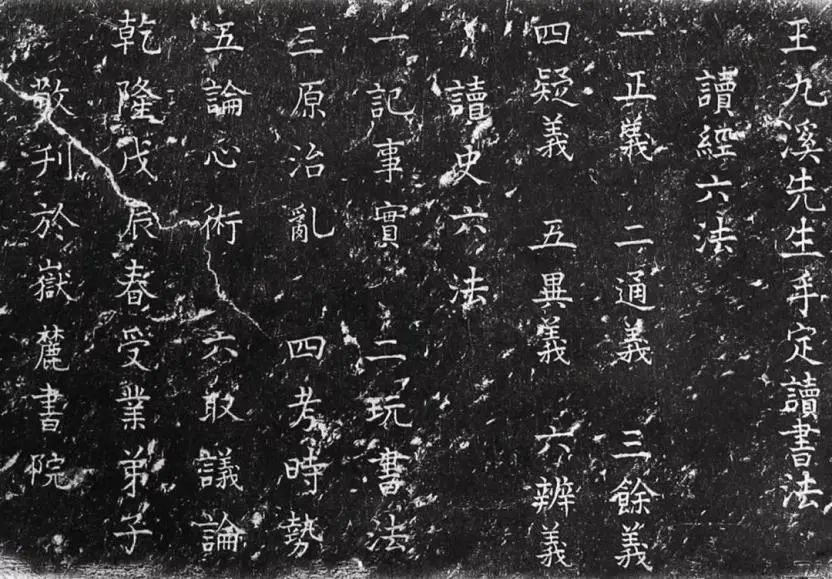 王九溪先生手定讀書法
讀經六法
一正義 二通義 三餘義
四疑義 五異義 六辨義
讀史六法
一記事實 二玩書法
三原治亂 四考時勢
五論心術 六取議論
乾隆戊辰春受業弟子
敬刊於嶽麓書院